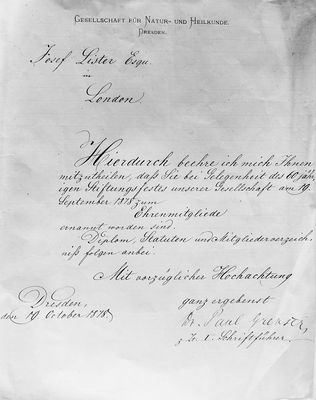 GESELLSCHAFT FÜR NATUR- UND HEILKUNDE.
DRESDEN.
Josef Lister Esqu.
in
London.
Hierdurch beehre ich mich Ihnen
mitzutheilen, daß Sie bei Gelegenheit des 60 jähr
igen Stiftungsfestes unserer Gesellschaft am 19.
September 1878 zum
Ehrenmitgliede
ernannt worden sind.
Diplom, Statuten und Mitgliederverzeich-
niß folgen anbei.
Mit vorzüglicher Hochachtung
Dresden,
den 19. October 1878.
ganz ergebenst
Dr. Paul
z. Z. I. Schriftführer.